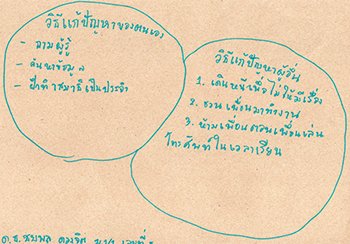 วิธีแก้ปัญหาของตนเอง
- ถามผู้รู้
- ค้นหาข้อมูล
- ฝึกทำสมาธิเป็นประจำ
วิธีแก้ปัญหาผู้อื่น
1. เดินหนีเพื่อไม่ให้มีเรื่อง
2. ชวนเพื่อนมาทำงาน
3. ห้ามเพื่อนตอนเพื่อนเล่น
โทรศัพท์ในเวลาเรียน
ด.ช.